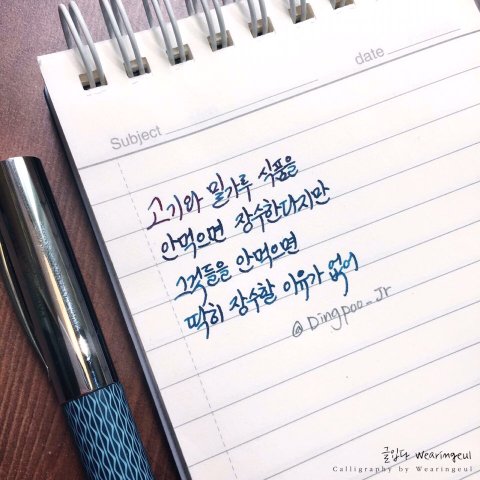 date
Subject
고기와 밀가루 식품을
안먹으면 장수한다지만
그것들을 안먹으면
딱히 장수할 이유가 없어
@Dingpoo_Jr
글입다 Wearingeul
Calligraphy by Wearingeul